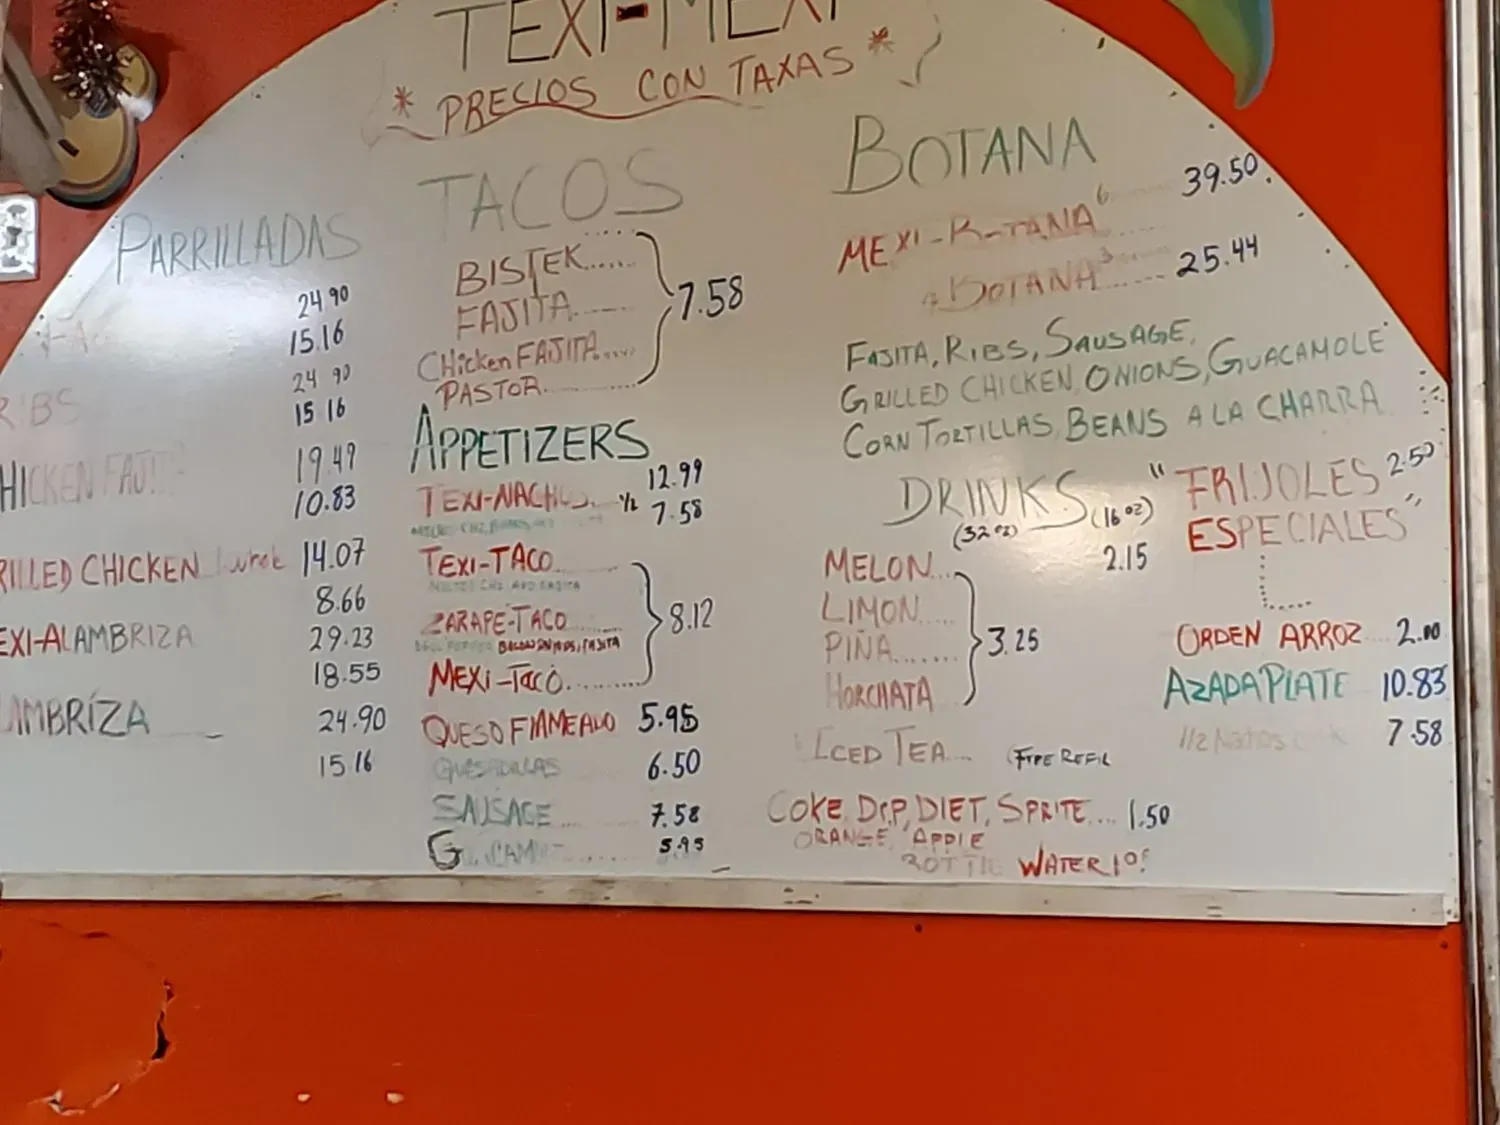 TEXI-MEXI
* PRECIOS CON TAXAS *
PARRILLADAS
24 90
15.16
RIBS 24 90
15 16
CHICKEN FAJIT 19.49
10.83
GRILLED CHICKEN 14.07
8.66
TEXI-ALAMBRIZA 29.23
18.55
ALAMBRÍZA 24.90
15 16
TACOS
BISTEK......
FAJITA......
CHicken FAJITA......
PASTOR......
7.58
APPETIZERS
TEXI-NACHOS 12.99
1/2 7.58
TEXI-TACO
ZARAPE-TACO
MEXI-TACO
8.12
QUESO FLAMEADO 5.95
QUESADILLAS 6.50
SAUSAGE 7.58
5.95
BOTANA
MEXI-BOTANA 6 39.50
BOTANA 3 25.44
FAJITA, RIBS, SAUSAGE,
GRILLED CHICKEN, ONIONS, GUACAMOLE
CORN TORTILLAS, BEANS A LA CHARRA
DRINKS
(32 oz) (16 oz)
MELON... 2.15
LIMON.....
PIÑA.......
HORCHATA
3.25
ICED TEA... (FREE REFIL
COKE, DR.P, DIET, SPRITE.... 1.50
ORANGE, APPLE
BOTTLE WATER
"FRIJOLES 2.50
ESPECIALES"
ORDEN ARROZ 2.00
AZADA PLATE 10.83
1/2 Nachos 7.58